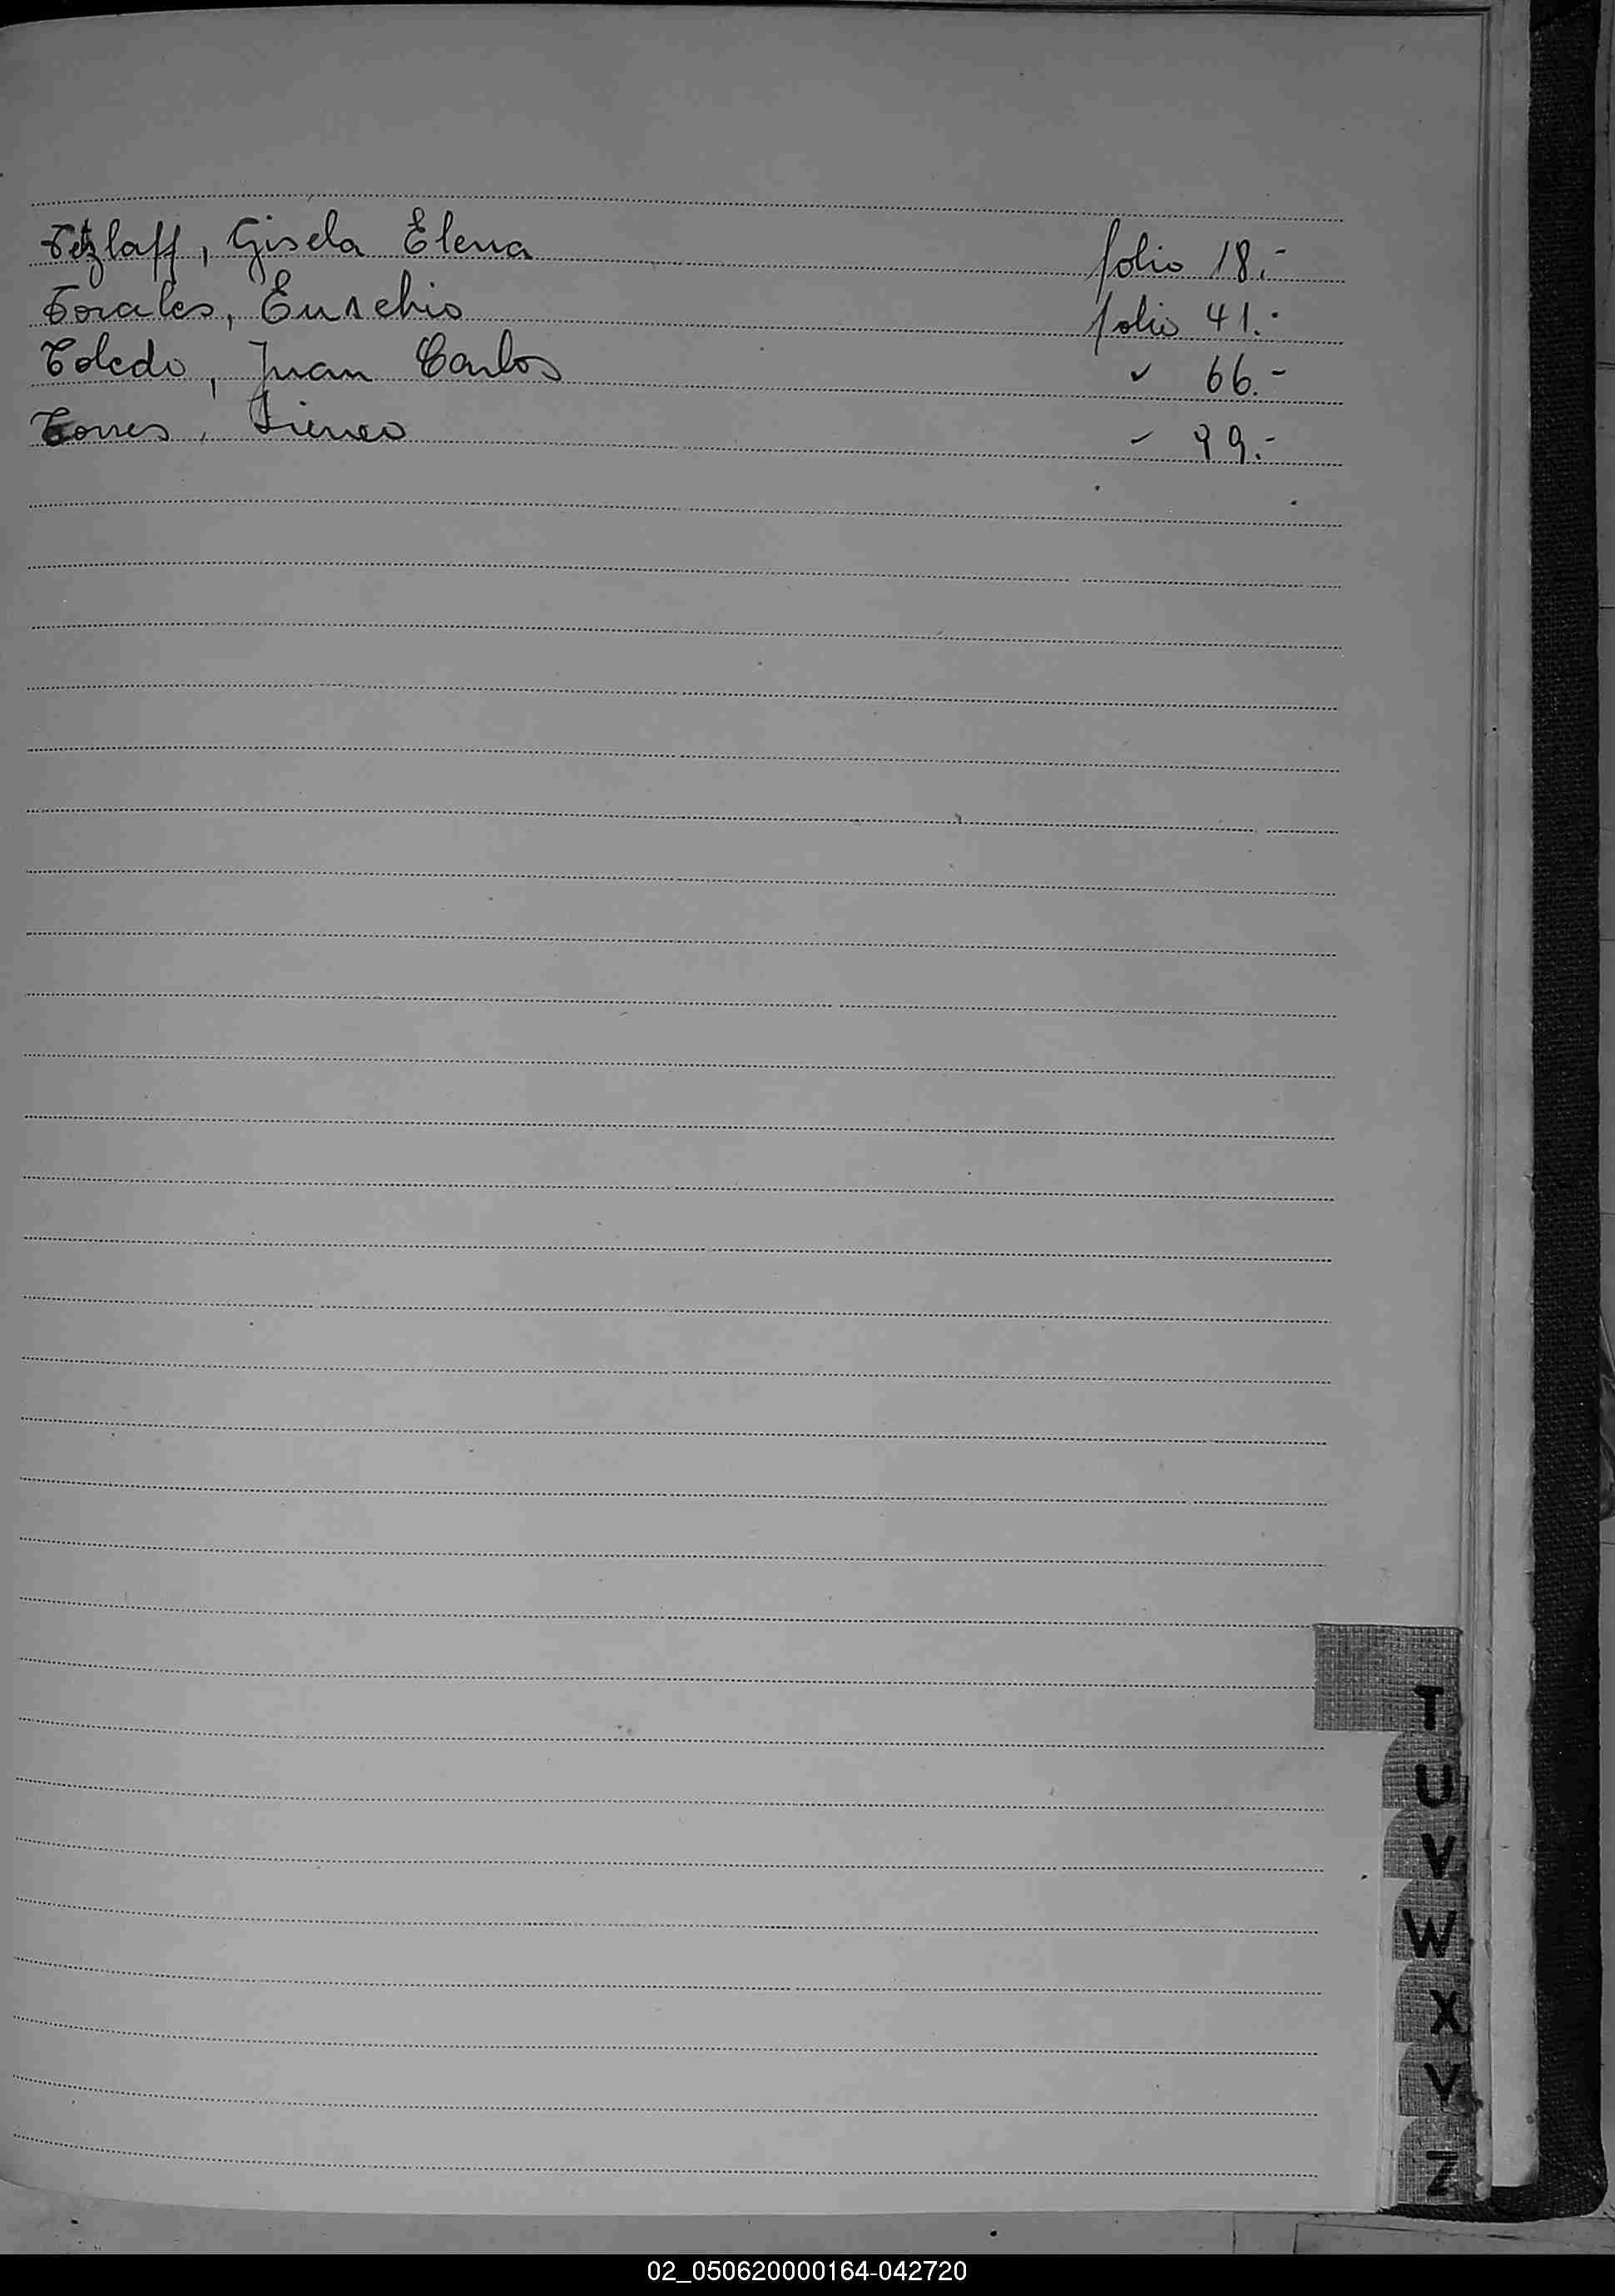 Tetzlaff, Gisela Elena folio 18.-
Torales, Eusebio folio 41.-
Toledo, Juan Carlos " 66.-
Torres, - 99.-
T
U
V
W
X
Y
Z
02_050620000164-042720